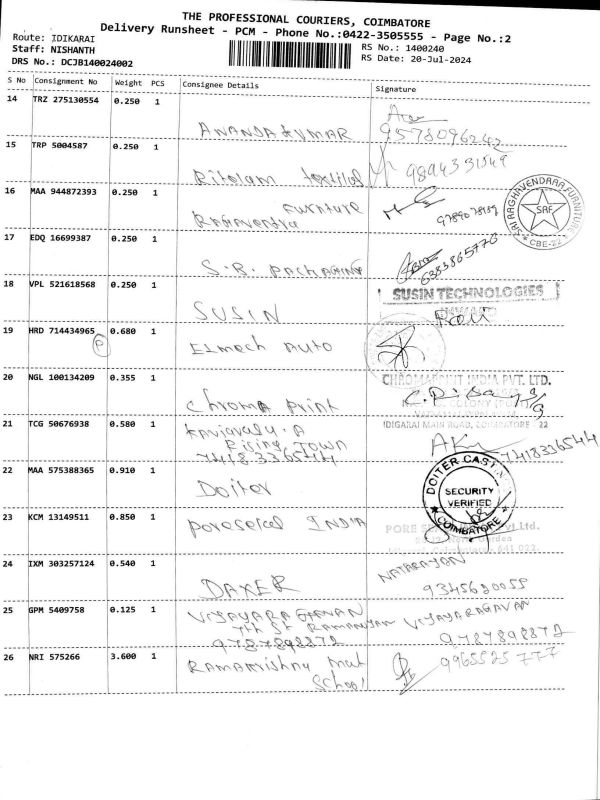 THE PROFESSIONAL COURIERS, COIMBATORE
Delivery Runsheet - PCM - Phone No.:0422-3505555 - Page No.:2
Route: IDIKARAI
RS No.: 1400240
Staff: NISHANTH
RS Date: 20-Jul-2024
DRS No.: DCJB140024002
S No Consignment No Weight PCS Consignee Details Signature
14 TRZ 275130554 0.250 1
ANANDA KUMAR 9578096242
15 TRP 5004587 0.250 1
textiles 9894331549
16 MAA 944872393 0.250 1
Furniture
SAI RAGHAVENDRAA FURNITURE
SRF
CBE-22
17 EDQ 16699387 0.250 1
S.R. Packaging 6383865776
18 VPL 521618568 0.250 1
SUSIN
SUSIN TECHNOLOGIES
19 HRD 714434965 0.680 1
P
Elmech Auto
20 NGL 100134209 0.355 1
Chroma Print
CHROMAPRINT INDIA PVT. LTD.
21 TCG 50676938 0.580 1
IDIGARAI MAIN ROAD, COIMBATORE - 22
Rising Town
7418336544 7418336544
22 MAA 575388365 0.910 1
Doiter
DOITER CASTING
SECURITY
VERIFIED
COIMBATORE
23 KCM 13149511 0.850 1
poreseal INDIA
24 IXM 303257124 0.540 1
DAXER
NATARAJAN
9345620055
25 GPM 5409758 0.125 1
VIJAYARAGHAVAN VIJAYARAGAVAN
7th St
9787898872 9787898872
26 NRI 575266 3.600 1
Ramakrishna Mat School
9965525777